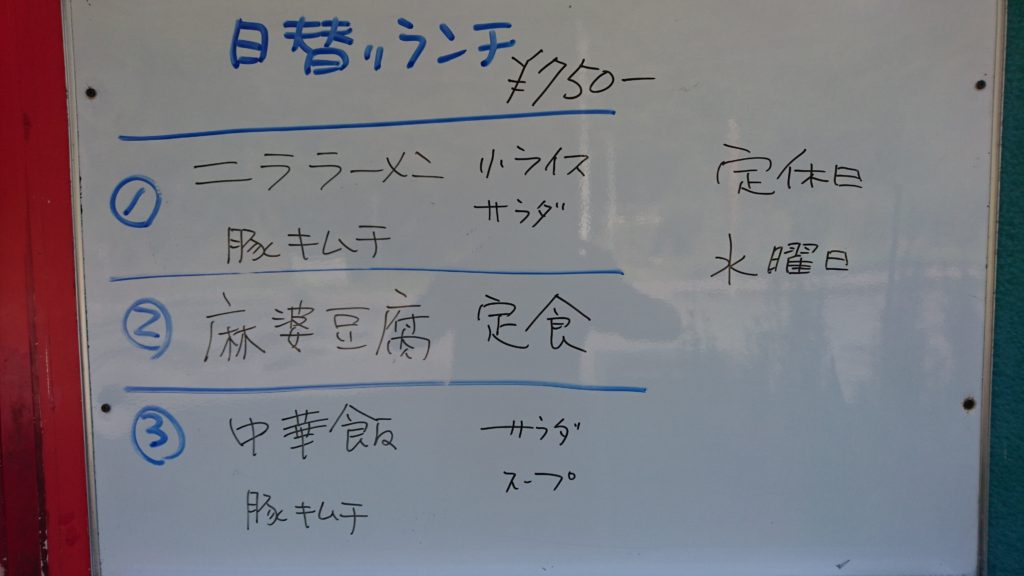 日替りランチ
¥750-
① ニララーメン 小ライス
サラダ
豚キムチ
② 麻婆豆腐 定食
③ 中華飯 サラダ
スープ
豚キムチ
定休日
水曜日